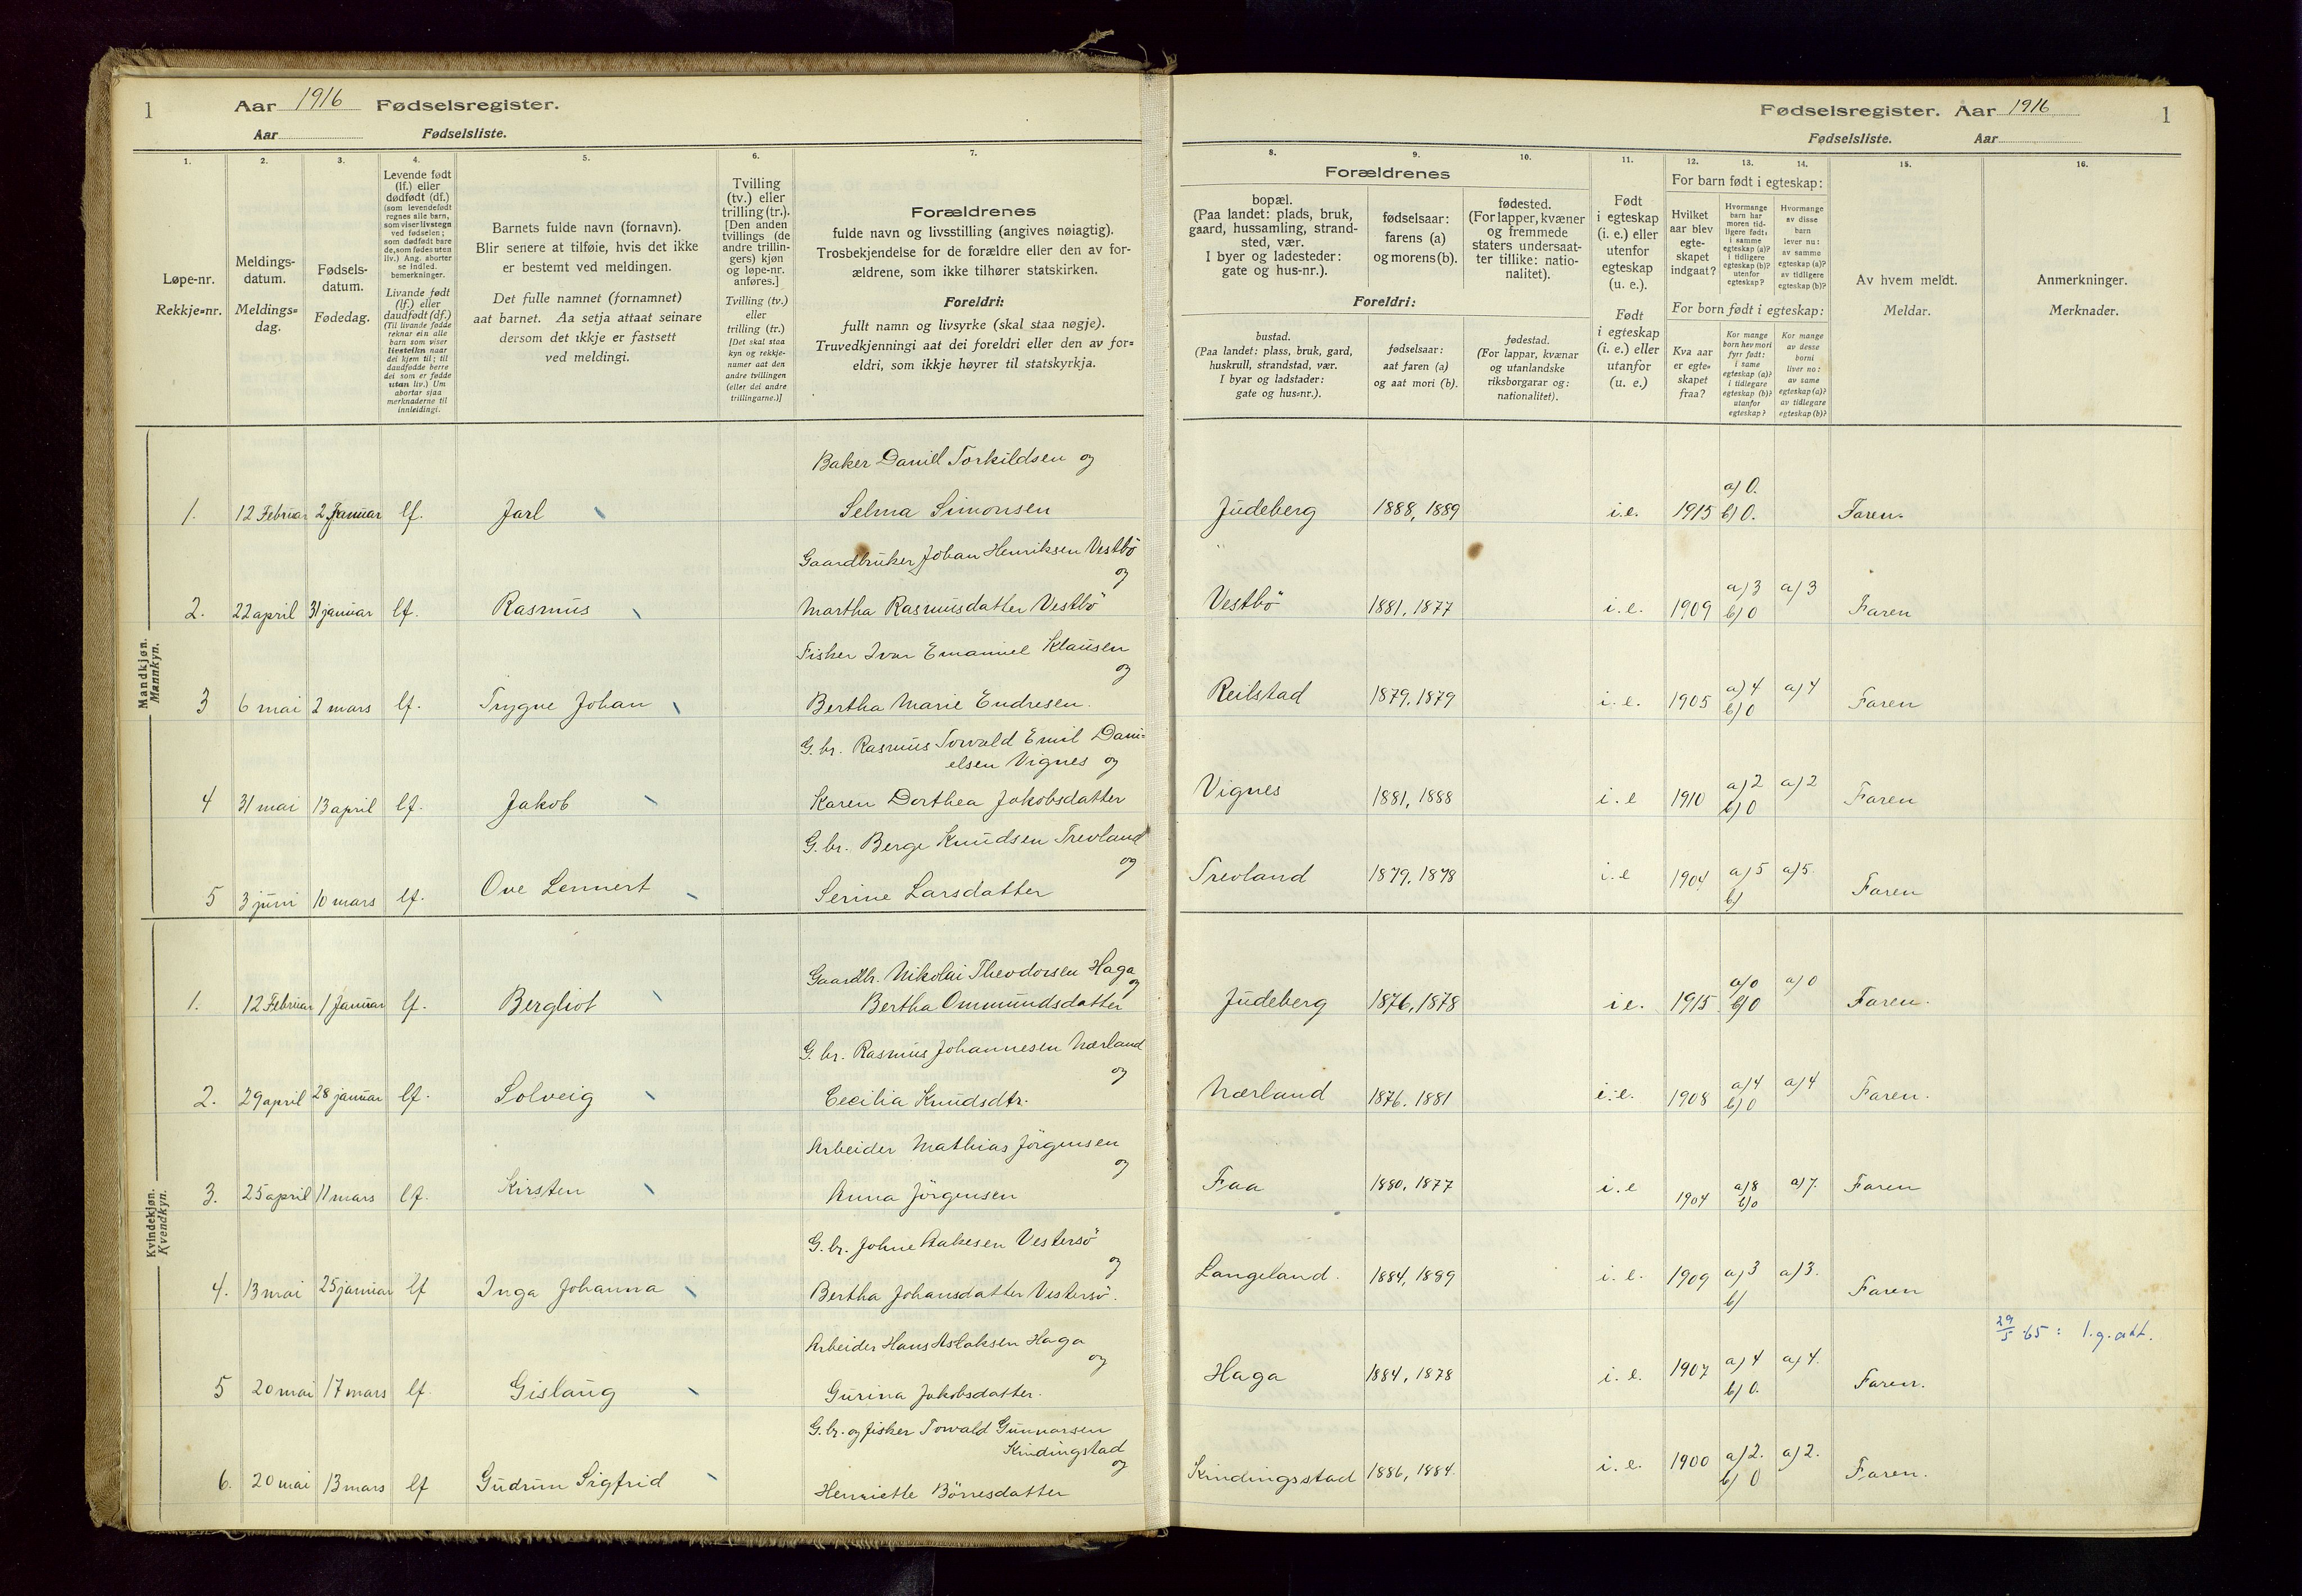 1
Aar 1916 Fødselsregister.
Aar Fødselsliste.
1.
2.
3.
4.
5.
6.
7.
Løpe-nr.
Rekkje-nr.
Meldings-
datum.
Meldings-
dag.
Fødsels-
datum.
Fødedag.
Levende født
(lf.) eller
dødfødt (df.)
(som levendefødt
regnes alle barn,
som viser livstegn
ved fødselen;
som dødfødt bare
de, som fødes uten
liv.) Ang. aborter
se indled.
bemerkninger.
Livande født
(lf.) eller
daudfødt (df.)
(Til livande fødde
reknar ein alle
barn som viser
livsteikn naar
dei kjem til; til
daudfødde berre
dei som er fødde
utan liv.) Um
abortar sjaa
merknaderne til
innleidingi.
Barnets fulde navn (fornavn).
Blir senere at tilføie, hvis det ikke
er bestemt ved meldingen.
Det fulle namnet (fornamnet)
aat barnet. Aa setja attaat seinare
dersom det ikkje er fastsett
ved meldingi.
Tvilling
(tv.) eller
trilling (tr.).
[Den anden
tvillings (de
andre trillin-
gers) kjøn
og løpe-nr.
anføres.]
Tvilling (tv.)
eller
trilling (tr.)
[Det skal staa
kyn og rekkje-
numer aat den
andre tvillingen
(eller dei andre
trillingarne.)]
Forældrenes
fulde navn og livsstilling (angives nøiagtig).
Trosbekjendelse for de forældre eller den av for-
ældrene, som ikke tilhører statskirken.
Foreldri:
fullt namn og livsyrke (skal staa nøgje).
Truvedkjenningi aat dei foreldri eller den av for-
eldri, som ikkje høyrer til statskyrkja.
Mandkjøn.
Mannkyn.
Baker Daniel Torkildsen og
1. 12 Februar 2 Januar lf. Jarl Selma Simonsen
Gaardbruker Johan Henriksen Vestbö
og
2. 22 april 31 januar lf. Rasmus Martha Rasmusdatter Vestbö
Fisker Ivar Emanuel Klausen
og
3 6 mai 2 mars lf. Trygve Johan Bertha Marie Endresen.
G. br. Rasmus Torvald Emil Dani-
elsen Vignes og
4 31 mai 13 april lf. Jakob Karen Dorthea Jakobsdatter
G. br. Berge Knudsen Trevland
og
5 3 juni 10 mars lf. Ove Lennert Serine Larsdatter
Kvindekjøn.
Kvendkyn.
Gaardbr. Nikolai Theodorsen Haga
og
1. 12 Februar 1 Januar lf. Bergliot Bertha Ommundsdatter
G. br. Rasmus Johannesen Nærland
og
2. 29 april 28 januar lf. Solveig Cecilia Knudsdtr.
Arbeider Mathias Jörgensen
og
3. 25 april 11 mars lf. Kirsten Anna Jörgensen
G. br. Johne Aakesen Vestersö
og
4. 13 mai 25 januar lf Inga Johanna Bertha Johansdatter Vestersö.
Arbeider Hans Aslaksen Haga
og
5 20 mai 17 mars lf. Gislaug Gurina Jakobsdatter.
G. br. og fisker Torvald Gunnarsen
Kindingstad
og
6. 20 mai 13 mars lf Gudrun Sigfrid Henriette Börresdatter
Fødselsregister. Aar 1916
1
Fødselsliste. Aar
8.
9.
10.
11.
12.
13.
14.
15.
16.
Forældrenes
bopæl.
(Paa landet: plads, bruk,
gaard, hussamling, strand-
sted, vær.
I byer og ladesteder:
gate og hus-nr.).
fødselsaar:
farens (a)
og morens (b).
fødested.
(For lapper, kvæner
og fremmede
staters undersaat-
ter tillike: natio-
nalitet).
Foreldri:
bustad.
(Paa landet: plass, bruk, gard,
huskrull, strandstad, vær.
I byar og ladstader:
gate og hus-nr.).
fødselsaar:
aat faren (a)
og aat mori (b).
fødestad.
(For lappar, kvænar
og utanlandske
riksborgarar og:
nationalitet).
Født
i egteskap
(i. e.) eller
utenfor
egteskap
(u. e.).
Født
i egteskap
(i. e.) eller
utanfor
(u. e.)
For barn født i egteskap:
Hvilket
aar blev
egte-
skapet
indgaat?
Hvormange
barn har
moren tid-
ligere født:
i samme
egteskap (a)?
i tidligere
egteskap (b)?
utenfor
egteskap?
Hvormange
av disse
barn
lever nu:
av samme
egteskap (a)?
av tidligere
egteskap (b)?
For born født i egteskap:
Kva aar
er egte-
skapet
fraa?
Kor mange
born hev mori
fyrr født:
i same
egteskap (a)?
i tidlegare
egteskap (b)?
utanfor
egteskap?
Kor mange
av desse
borni
liver no:
av same
egteskap (a)?
av tidlegare
egteskap (b)?
Av hvem meldt.
Meldar.
Anmerkninger.
Merknader.
Judeberg 1888, 1889 i.e. 1915 a) 0. b) 0. Faren.
Vestbö 1881, 1877 i. e. 1909 a) 3 b) 0 a) 3 Faren
Reilstad 1879, 1879 i. e. 1905 a) 4 b) 0 a) 4 Faren
Vignes 1881, 1888 i. e 1910 a) 2 b) 0 a) 2 Faren
Trevland 1879, 1878 i. e 1904 a) 5 b) a) 5. Faren
Judeberg 1876, 1878 i e. 1915 a) 0 b) 0 a) 0 Faren.
Nærland 1876. 1881 i. e. 1908 a) 4 b) 0 a) 4 Faren.
Faa 1880, 1877 i. e 1904 a) 8 b) 0 a) 7. Faren
Langeland. 1884, 1889 i. e. 1909 a) 3 b) a) 3. Faren
29/5 65: l.g. att.
Haga 1884, 1878 i. e. 1907 a) 4 b) 0. a) 4. Faren.
Kindingsstad 1886, 1884. i. e. 1900 a) 2. b) 0 a) 2. Faren.